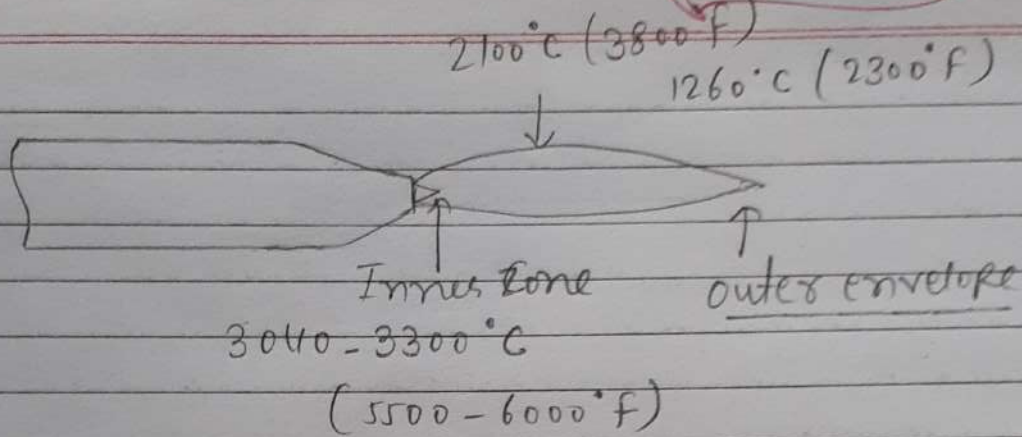 2100°C (3800°F)
1260°C (2300°F)
Inner Zone
outer envelope
3040-3300°C
(5500-6000°F)